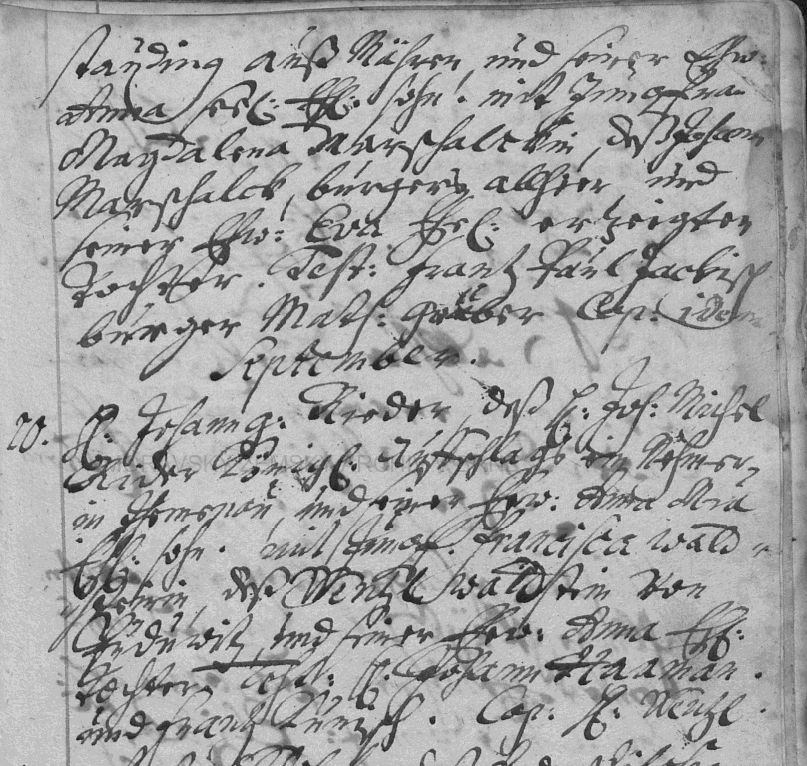 standing auß Mähren, und seiner Ehw:
Anna seel: Ehl: sohn. mit Jungfra
Magdalena Marschalckin, deß Johann
Marschalck, burgers allhier, und
seiner Ehw: Eva Ehel: erzeigten
Tochter. Test: Frantz Paul Jackisch
burger Math: Gruber Cop: idem
September.
20. H: Johann g: Rieder, deß H: Joh: Michel
Rider Königl: Auffschlags
in und seiner Ehw: Anna Mria
Ehl: sohn. mit Jungf. Francisca Wald-
steinin, deß Wentzl Waldstein von
und seiner Ehw: Anna Ehl:
Tochter, Test: H. Johann Haaman.
und Frantz Cop: H: Wentzl.